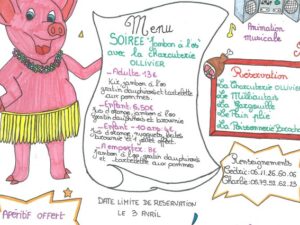 Menu
SOIRÉE "Jambon à l'os"
avec la Charcuterie
OLLIVIER
- Adulte 13€
Kir, jambon à l'os
gratin dauphinois et tartelette
aux pommes.
- Enfant 6,50€
jambon à l'os
gratin dauphinois et
- Enfant -10 ans 4€
nuggets, frites
et 1 jouet offert.
- A emporter 8€
Jambon à l'os, gratin dauphinois
et tartelette aux pommes
DATE LIMITE DE RESERVATION
LE 3 AVRIL
Apéritif offert
Animation
musicale
Réservation
La Charcuterie OLLIVIER
Le
La
Le Pain plié
La Poissonnerie
Renseignements
Cédric: 06.11.26.60.06
Charlie: 06.79.52.62.23